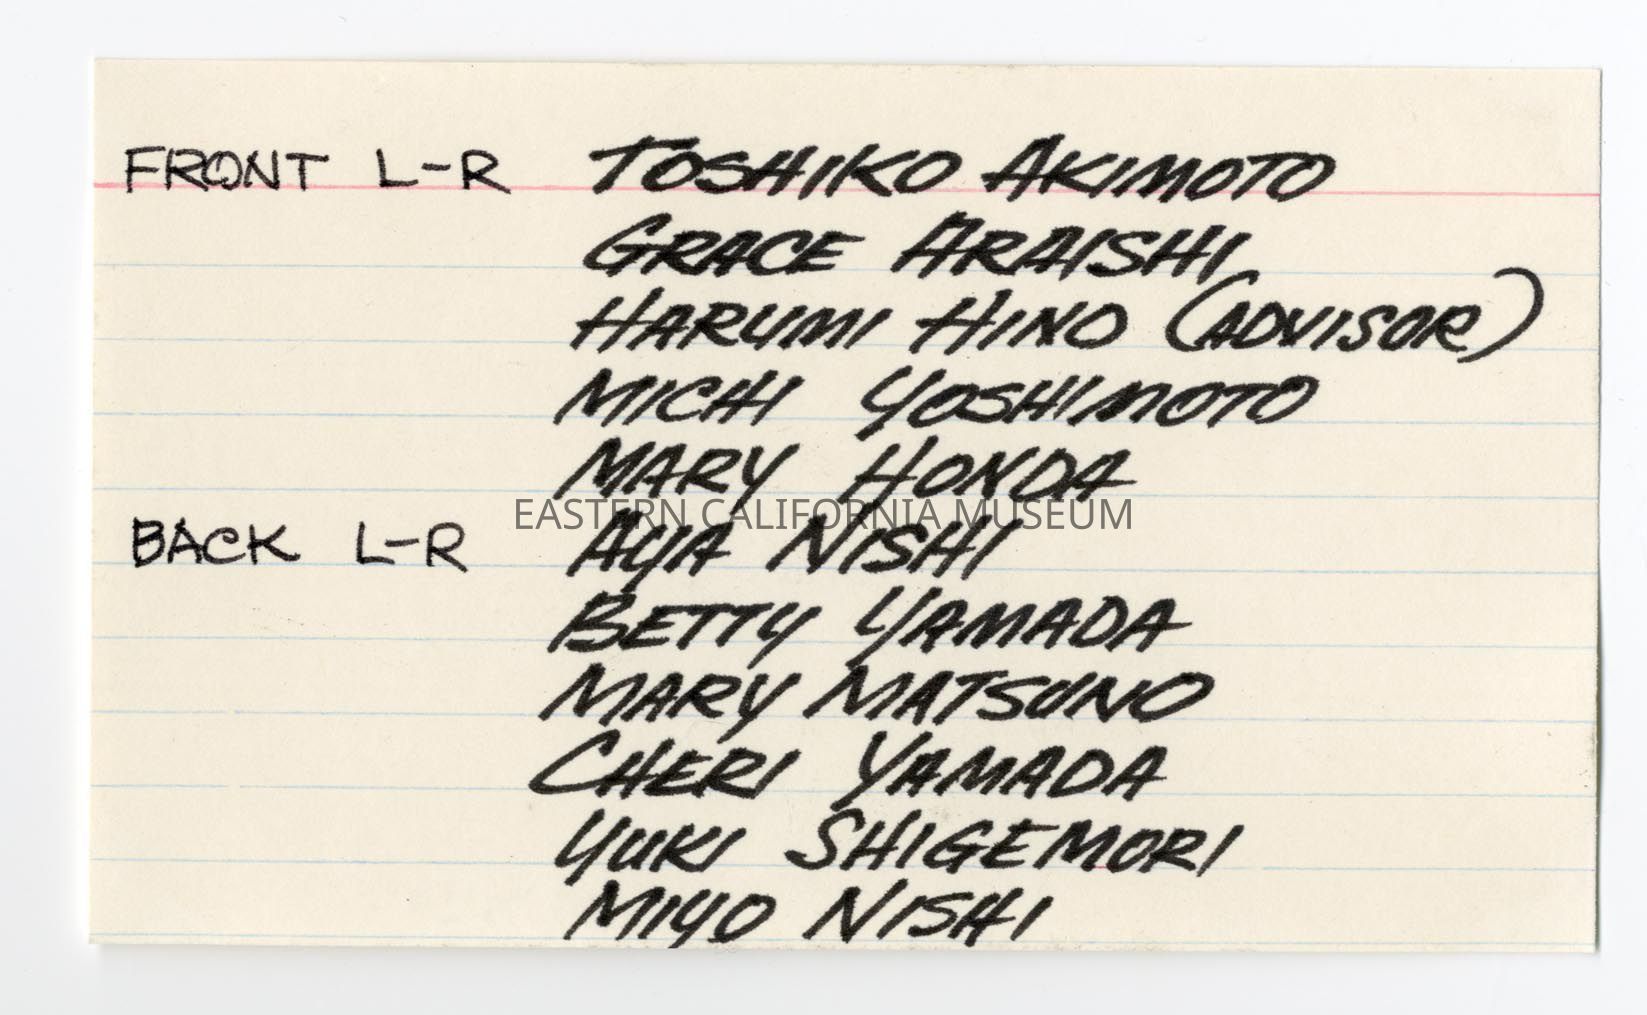 FRONT L-R TOSHIKO AKIMOTO
GRACE ARAISHI
HARUMI HINO (ADVISOR)
MICHI YOSHIMOTO
MARY HONDA
EASTERN CALIFORNIA MUSEUM
BACK L-R AYA NISHI
BETTY YAMADA
MARY MATSUNO
CHERI YAMADA
YUKI SHIGEMORI
MIYO NISHI